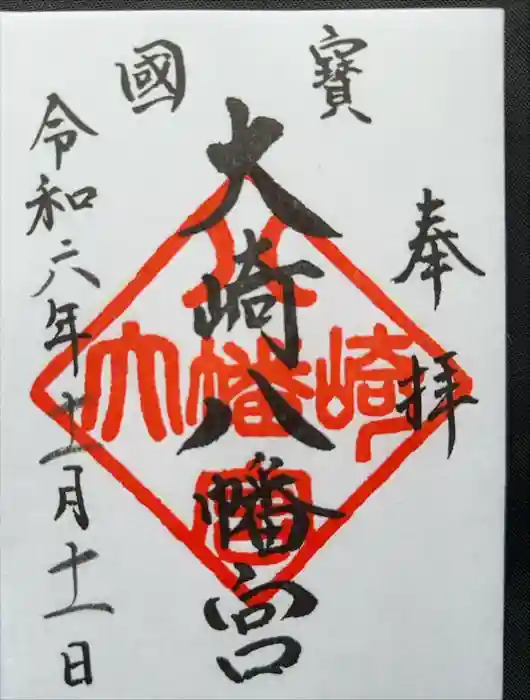 奉拝
寶國
大崎八幡宮
大崎八幡宮
令和六年十一月十一日